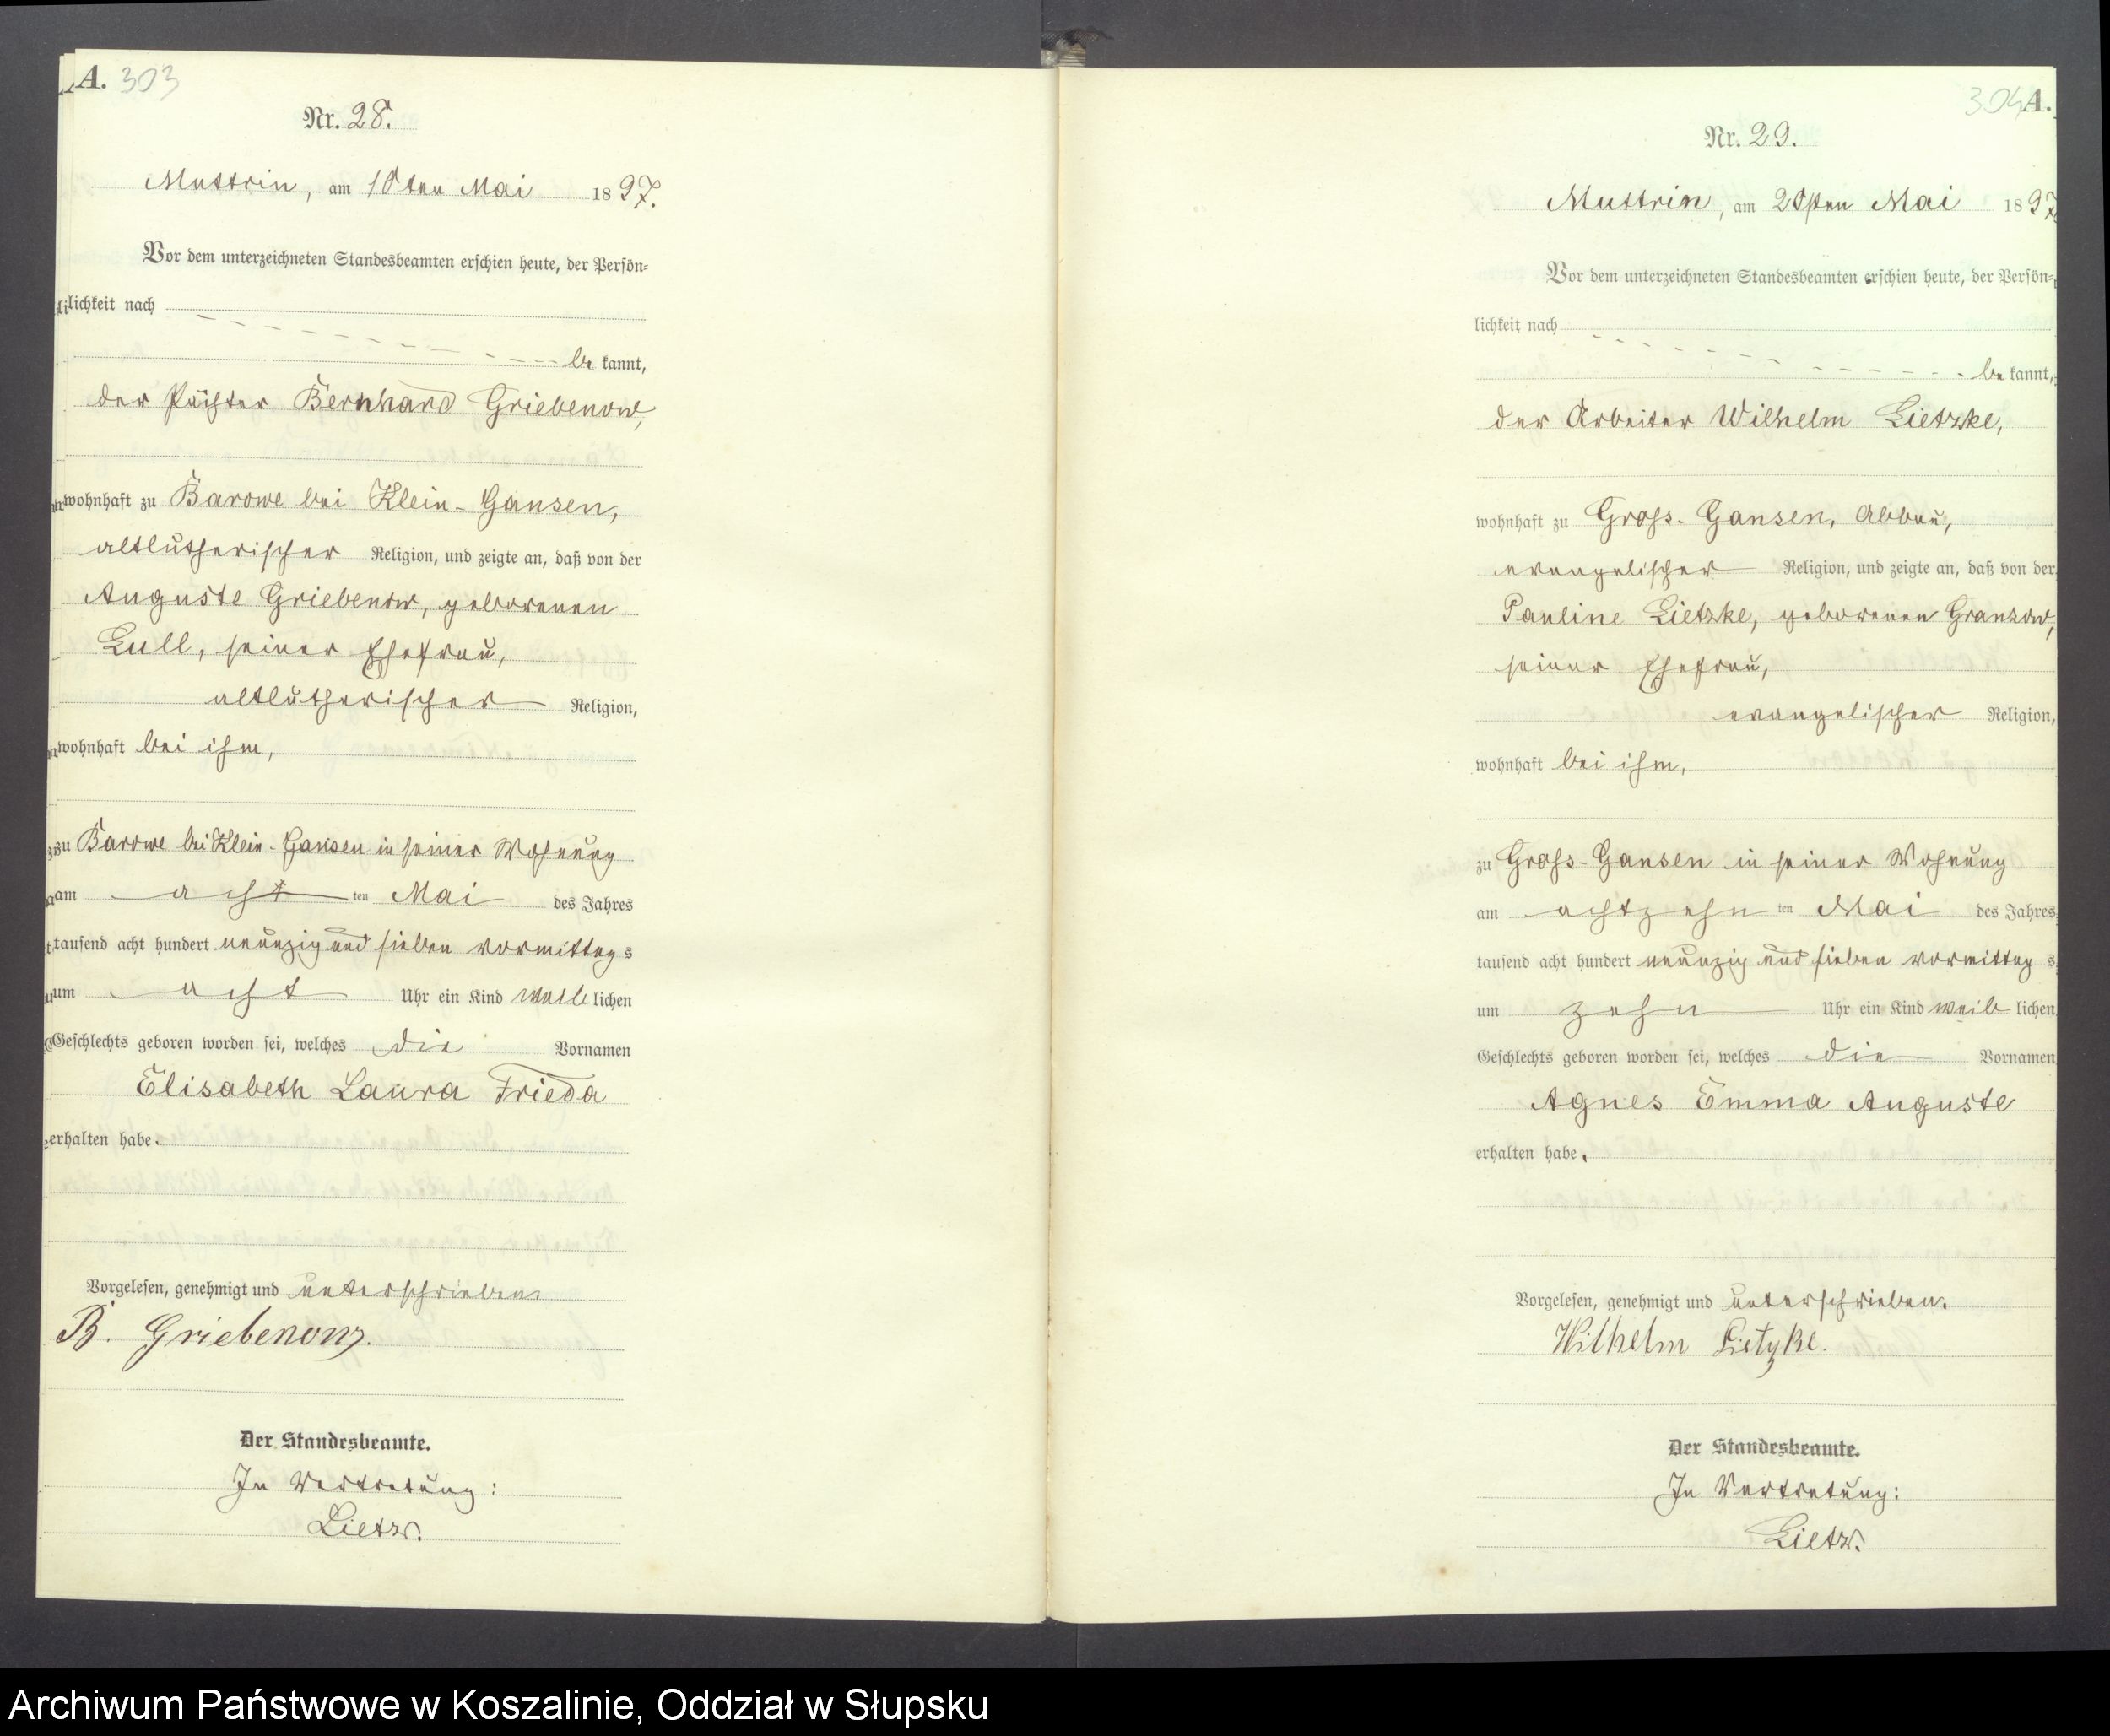 A. 303
Nr. 28.
Muttrin, am 10ten Mai 1897.
Vor dem unterzeichneten Standesbeamten erschien heute, der Persön=
lichkeit nach
be kannt,
der Pächter Bernhard Griebenow,
wohnhaft zu Barowe bei Klein-Gansen,
altlutherischer Religion, und zeigte an, daß von der
Auguste Griebenow, geborenen
Lull, seiner Ehefrau,
altlutherischer Religion,
wohnhaft bei ihm,
zu Barowe bei Klein-Gansen in seiner Wohnung
am acht ten Mai des Jahres
tausend acht hundert neunzig und sieben vormittag s
um acht Uhr ein Kind weib lichen
Geschlechts geboren worden sei, welches die Vornamen
Elisabeth Laura Frieda
erhalten habe.
Vorgelesen, genehmigt und unterschrieben.
B. Griebenow.
Der Standesbeamte.
In Vertretung:
Lietz.
304 A.
Nr. 29.
Muttrin, am 20sten Mai 1897
Vor dem unterzeichneten Standesbeamten erschien heute, der Persön=
lichkeit nach
be kannt,
der Arbeiter Wilhelm Lietzke,
wohnhaft zu Gross-Gansen, Abbau,
evangelischer Religion, und zeigte an, daß von der
Pauline Lietzke, geborenen Granzow,
seiner Ehefrau,
evangelischer Religion,
wohnhaft bei ihm,
zu Gross-Gansen in seiner Wohnung
am achtzehn ten Mai des Jahres
tausend acht hundert neunzig und sieben vormittag s
um zehn Uhr ein Kind weib lichen
Geschlechts geboren worden sei, welches die Vornamen
Agnes Emma Auguste
erhalten habe.
Vorgelesen, genehmigt und unterschrieben.
Wilhelm Lietzke.
Der Standesbeamte.
In Vertretung:
Lietz.
Archiwum Państwowe w Koszalinie, Oddział w Słupsku